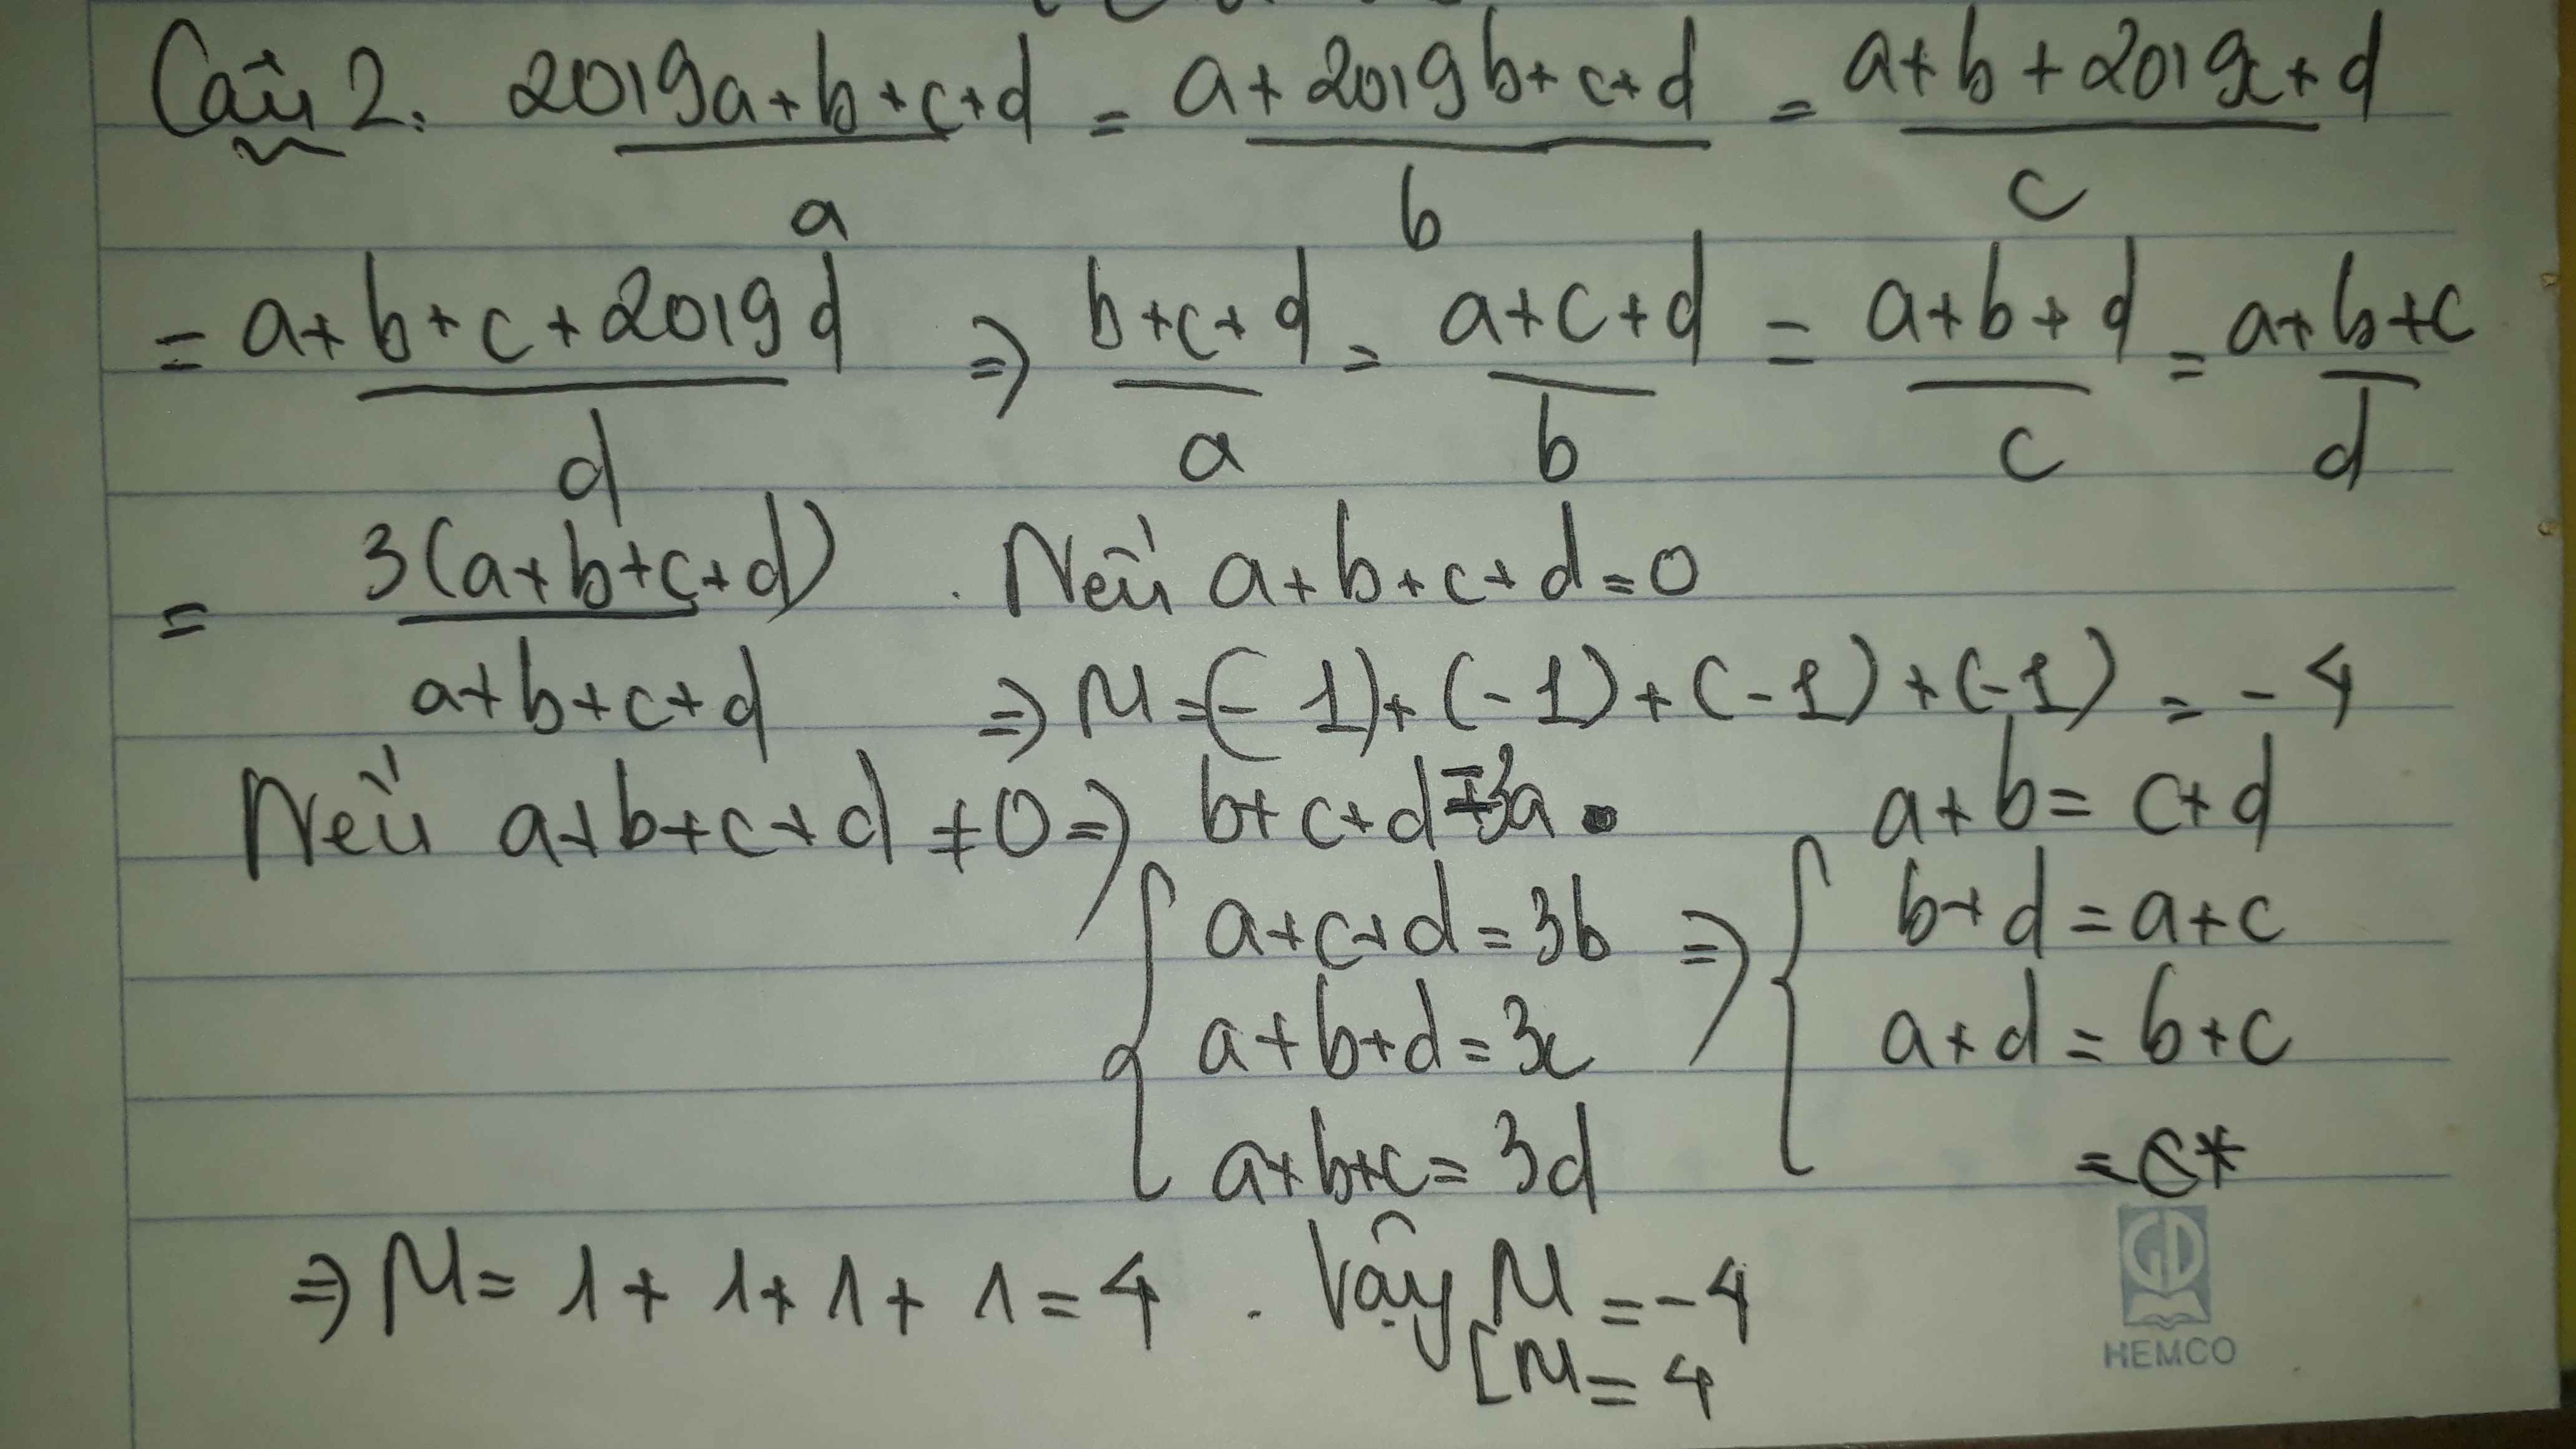 Câu 2. (2019a+b+c+d)/a = (a+2019b+c+d)/b = (a+b+2019c+d)/c
= (a+b+c+2019d)/d ⇒ (b+c+d)/a = (a+c+d)/b = (a+b+d)/c = (a+b+c)/d
= 3(a+b+c+d)/(a+b+c+d) . Nếu a+b+c+d=0
⇒ M=(-1)+(-1)+(-1)+(-1) = -4
Nếu a+b+c+d ≠0 ⇒ { b+c+d=3a
a+c+d=3b
a+b+d=3c
a+b+c=3d
⇒ { a+b=c+d
b+d=a+c
a+d=b+c
⇒ M= 1+1+1+1=4 . Vậy [ M=-4
M=4
HEMCO